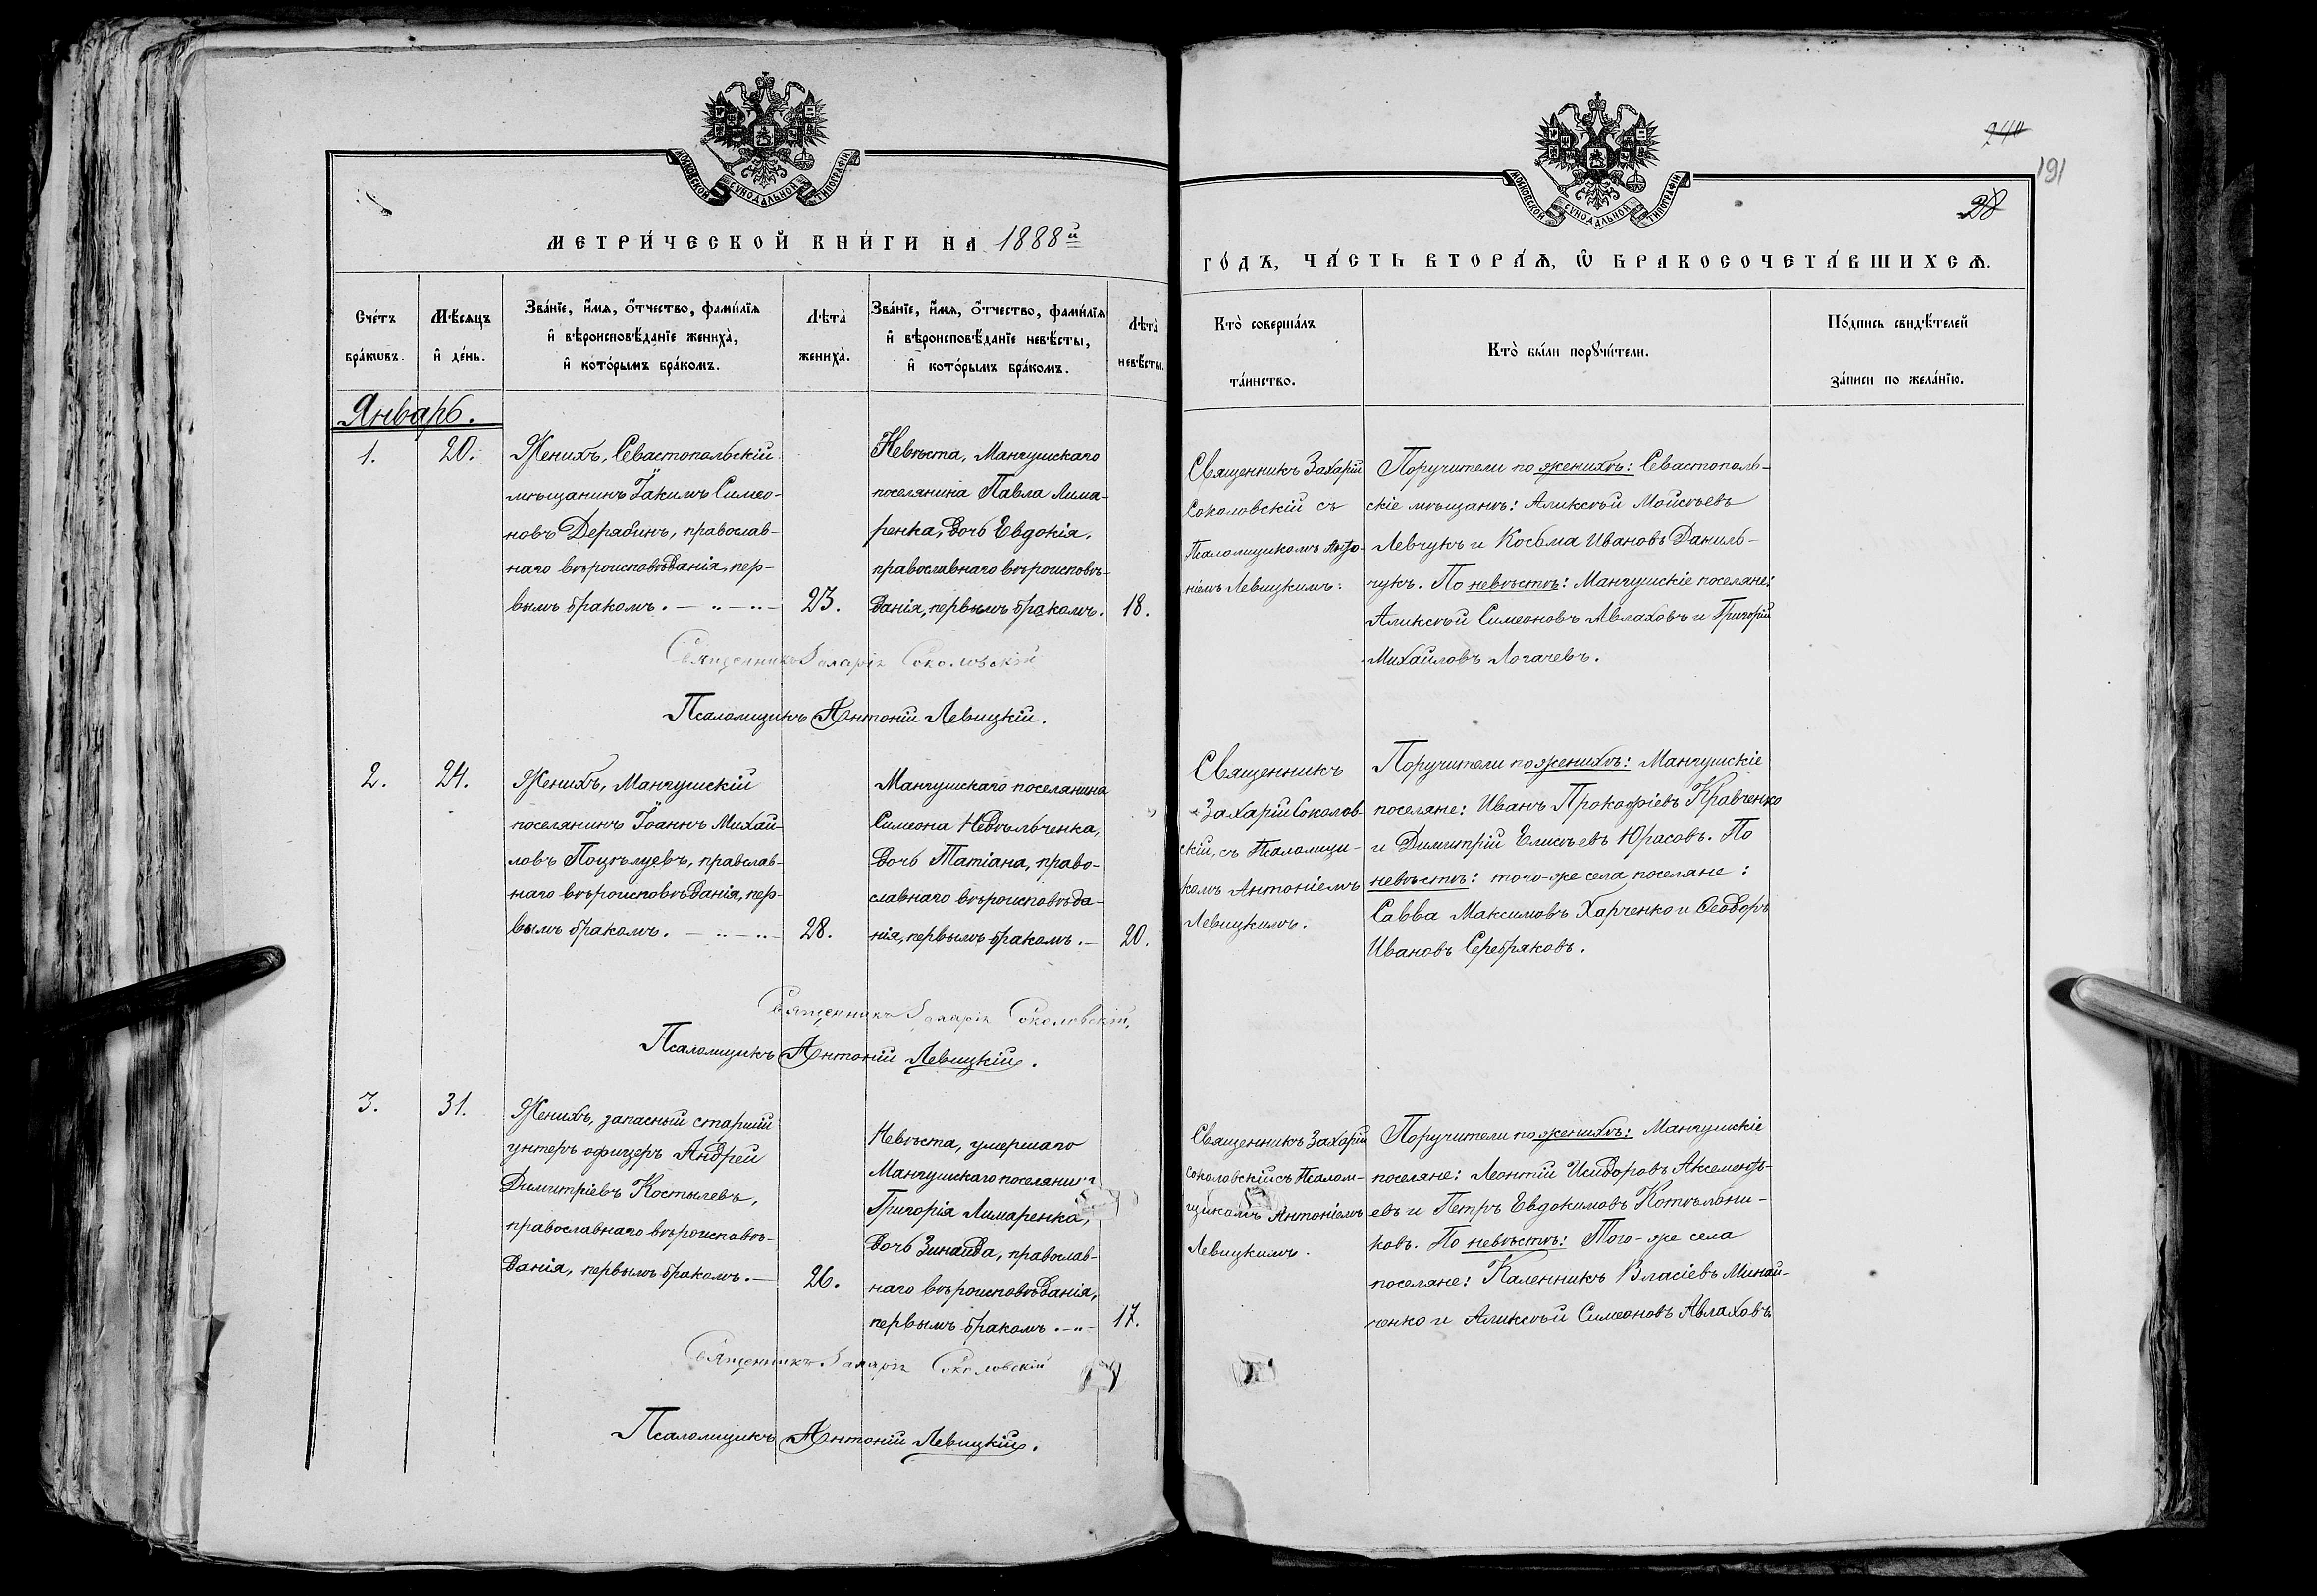 МОСКОВСКОЙ СѴНОДАЛЬНОЙ ТИПОГРАФІИ
МЕТРИ́ЧЕСКОЙ КНИ́ГИ НА 1888й
Сче́тъ бра́кѡвъ.
Мѣ́сяцъ и҆ де́нь.
Зва́нїе, и҆́мя, ѻ҆́тчество, фами́лїя
и҆ вѣроисповѣ́данїе женихà,
и҆ кото́рымъ бра́комъ.
Лѣтà женихà.
Зва́нїе, и҆́мя, ѻ҆́тчество, фами́лїя
и҆ вѣроисповѣ́данїе невѣ́сты,
и҆ кото́рымъ бра́комъ.
Лѣтà невѣ́сты.
Январь.
1.
20.
Женихъ, Севастопольскій
мѣщанинъ Іакимъ Симео-
новъ Дерябинъ, православ-
наго вѣроисповѣданія, пер-
вымъ бракомъ.
23.
Невѣста, Мангушскаго
поселянина Павла Лима-
ренка, дочь Евдокія,
православнаго вѣроисповѣ-
данія, первымъ бракомъ.
18.
Священникъ Захарія Соколовскій
Псаломщикъ Антоній Левицкій.
2.
24.
Женихъ, Мангушскій
поселянинъ Іоаннъ Михай-
ловъ Поцѣлуевъ, правслав-
наго вѣроисповѣданія, пер-
вымъ бракомъ.
28.
Мангушскаго поселянина
Симеона Невѣльченка,
дочь Татіана, право-
славнаго вѣроисповѣда-
нія, первымъ бракомъ.
20.
Священникъ Захарія Соколовскій,
Псаломщикъ Антоній Левицкій.
3.
31.
Женихъ, запасный старшій
унтеръ офицеръ Андрей
Димитріевъ Костылевъ,
православнаго вѣроисповѣ-
данія, первымъ бракомъ.
26.
Невѣста, умершаго
Мангушскаго поселянина
Григорія Лимаренка,
дочь Зинаида, православ-
наго вѣроисповѣданія,
первымъ бракомъ.
17.
Священникъ Захарія Соколовскій
Псаломщикъ Антоній Левицкій.
191
28
МОСКОВСКОЙ СѴНОДАЛЬНОЙ ТИПОГРАФІИ
ГО́ДЪ, ЧА́СТЬ ВТОРА́Ѧ, Ѽ БРАКОСОЧЕТА́ВШИХСѦ.
Ктò соверша́лъ
та́инство.
Ктò бы́ли порꙋчи́тели.
По́дпись свидѣ́телей
за́писи по жела́нїю.
Священникъ Захарій
Соколовскій съ
Псаломщикомъ Анто-
ніемъ Левицкимъ.
Поручители по женихѣ: Севастополь-
скіе мѣщане: Аликсѣй Моисѣевъ
Левчукъ и Косьма Ивановъ Даниль-
чукъ. По невѣстѣ: Мангушскіе поселяне:
Аликсѣй Симеоновъ Авлаховъ и Григорій
Михайловъ Логачевъ.
Священникъ
Захарій Соколов-
скій, съ Псаломщи-
комъ Антоніемъ
Левицкимъ.
Поручители по женихѣ: Мангушскіе
поселяне: Иванъ Прокофіевъ Кравченко
и Димитрій Елисѣевъ Юрасовъ. По
невѣстѣ: того-же села поселяне:
Савва Максимовъ Харченко и Ѳеодоръ
Ивановъ Серебряковъ.
Священникъ Захарій
Соколовскій съ Псалом-
щикомъ Антоніемъ
Левицкимъ.
Поручители по женихѣ: Мангушскіе
поселяне: Леонтій Исидоровъ Аксменть-
евъ и Петръ Евдокимовъ Котѣльни-
ковъ. По невѣстѣ: Того-же села
поселяне: Каленникъ Власіевъ Минай-
ченко и Аликсѣй Симеоновъ Авлаховъ